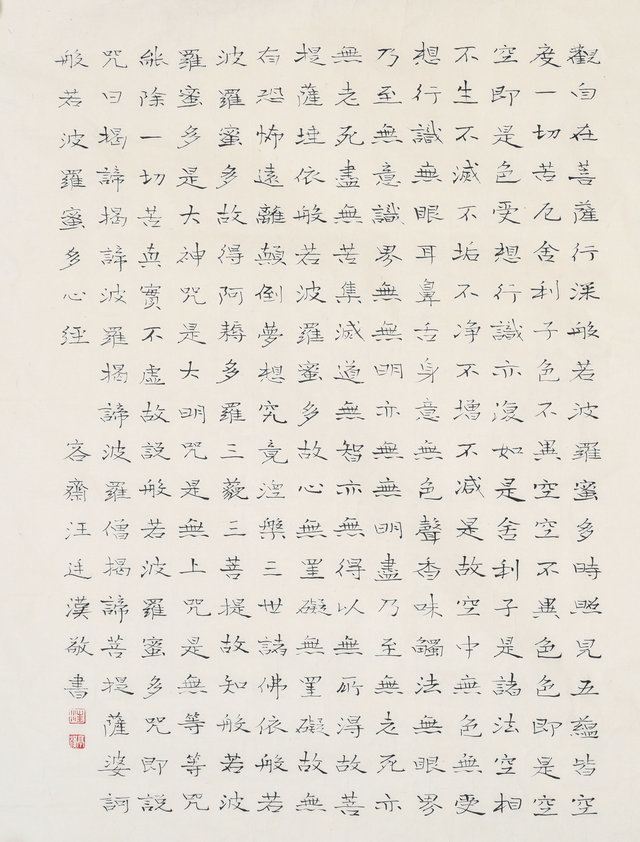 觀自在菩薩行深般若波羅蜜多時照見五蘊皆空
度一切苦厄舍利子色不異空空不異色色即是空
空即是色受想行識亦復如是舍利子是諸法空相
不生不滅不垢不净不增不減是故空中無色無受
想行識無眼耳鼻舌身意無色聲香味觸法無眼界
乃至無意識界無無明亦無無明盡乃至無老死亦
無老死盡無苦集滅道無智亦無得以無所得故菩
提薩埵依般若波羅蜜多故心無罣礙無罣礙故無
有恐怖遠離顛倒夢想究竟涅槃三世諸佛依般若
波羅蜜多故得阿耨多羅三藐三菩提故知般若波
羅蜜多是大神咒是大明咒是無上咒是無等等咒
能除一切苦真實不虛故說般若波羅蜜多咒即說
咒曰揭諦揭諦波羅揭諦波羅僧揭諦菩提薩婆訶
般若波羅蜜多心經 容齋汪廷漢敬書